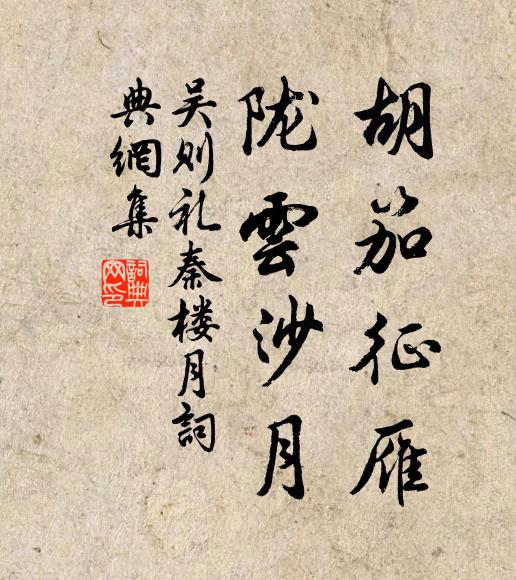 胡笳征雁
陇雲沙月
吴则礼秦楼月詞
典網集
詞典网印